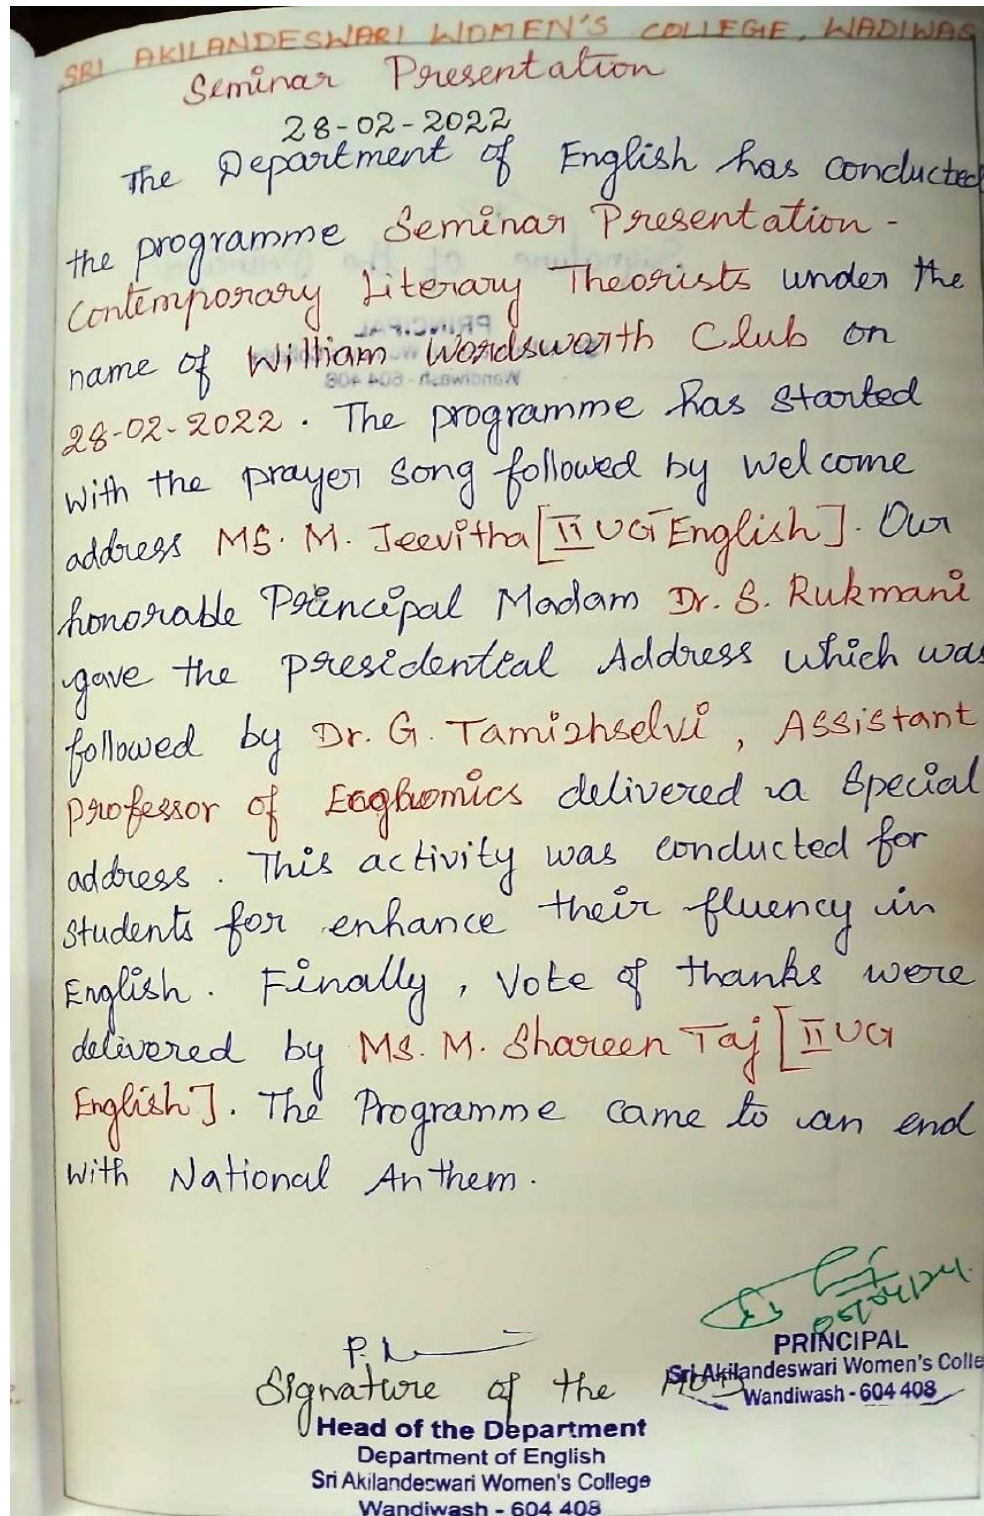 SRI AKILANDESWARI WOMEN'S COLLEGE, WADIWAS
Seminar Presentation
28-02-2022
The Department of English has conducted
the programme Seminar Presentation -
Contemporary Literary Theorists under the
name of William Wordswarth Club on
28-02-2022. The programme has started
with the prayer song followed by welcome
address MS. M. Jeevitha [II UG English]. Our
honorable Principal Madam Dr. S. Rukmani
gave the presidential Address which was
followed by Dr. G. Tamizhselvi, Assistant
professor of delivered a Special
address. This activity was conducted for
students for enhance their fluency in
English. Finally, Vote of thanks were
delivered by Ms. M. Shareen Taj [II UG
English]. The Programme came to an end
with National Anthem.
PRINCIPAL
Sri Akilandeswari Women's Colle
Wandiwash - 604 408
Signature of the HOD
Head of the Department
Department of English
Sri Akilandeswari Women's College
Wandiwash - 604 408